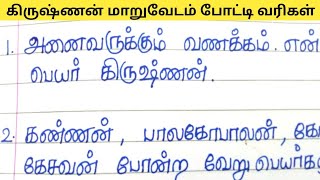 கிருஷ்ணன் மாறுவேடம் போட்டி வரிகள்
1. அனைவருக்கும் வணக்கம். என்
பெயர் கிருஷ்ணன்.
2. கண்ணன், பாலகோபாலன், கே
கேசவன் போன்ற வேறு பெயர்க